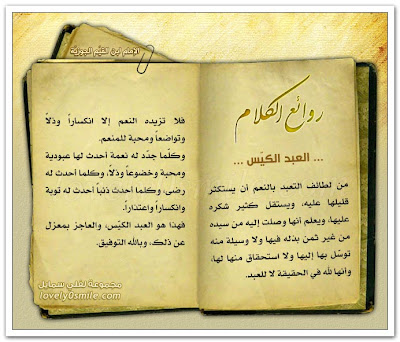 الإمام ابن القيم الجوزية
روائع الكلام
... العبد الكيّس ...
من لطائف التعبد بالنعم أن يستكثر
قليلها عليه، ويستقل كثير شكره
عليها، ويعلم أنها وصلت إليه من سيده
من غير ثمن بذله فيها ولا وسيلة منه
توسّل بها إليها ولا استحقاق منها لها،
وأنها لله في الحقيقة لا للعبد.
فلا تزيده النعم إلا انكساراً وذلاً
وتواضعاً ومحبة للمنعم.
وكلّما جدّد له نعمة أحدث لها عبودية
ومحبة وخضوعاً وذلاً، وكلما أحدث له
رضى، وكلما أحدث ذنباً أحدث له توبة
وانكساراً واعتذاراً.
فهذا هو العبد الكيّس، والعاجز بمعزل
عن ذلك، وبالله التوفيق.
مجموعة لفلي سمايل
lovely0smile.com